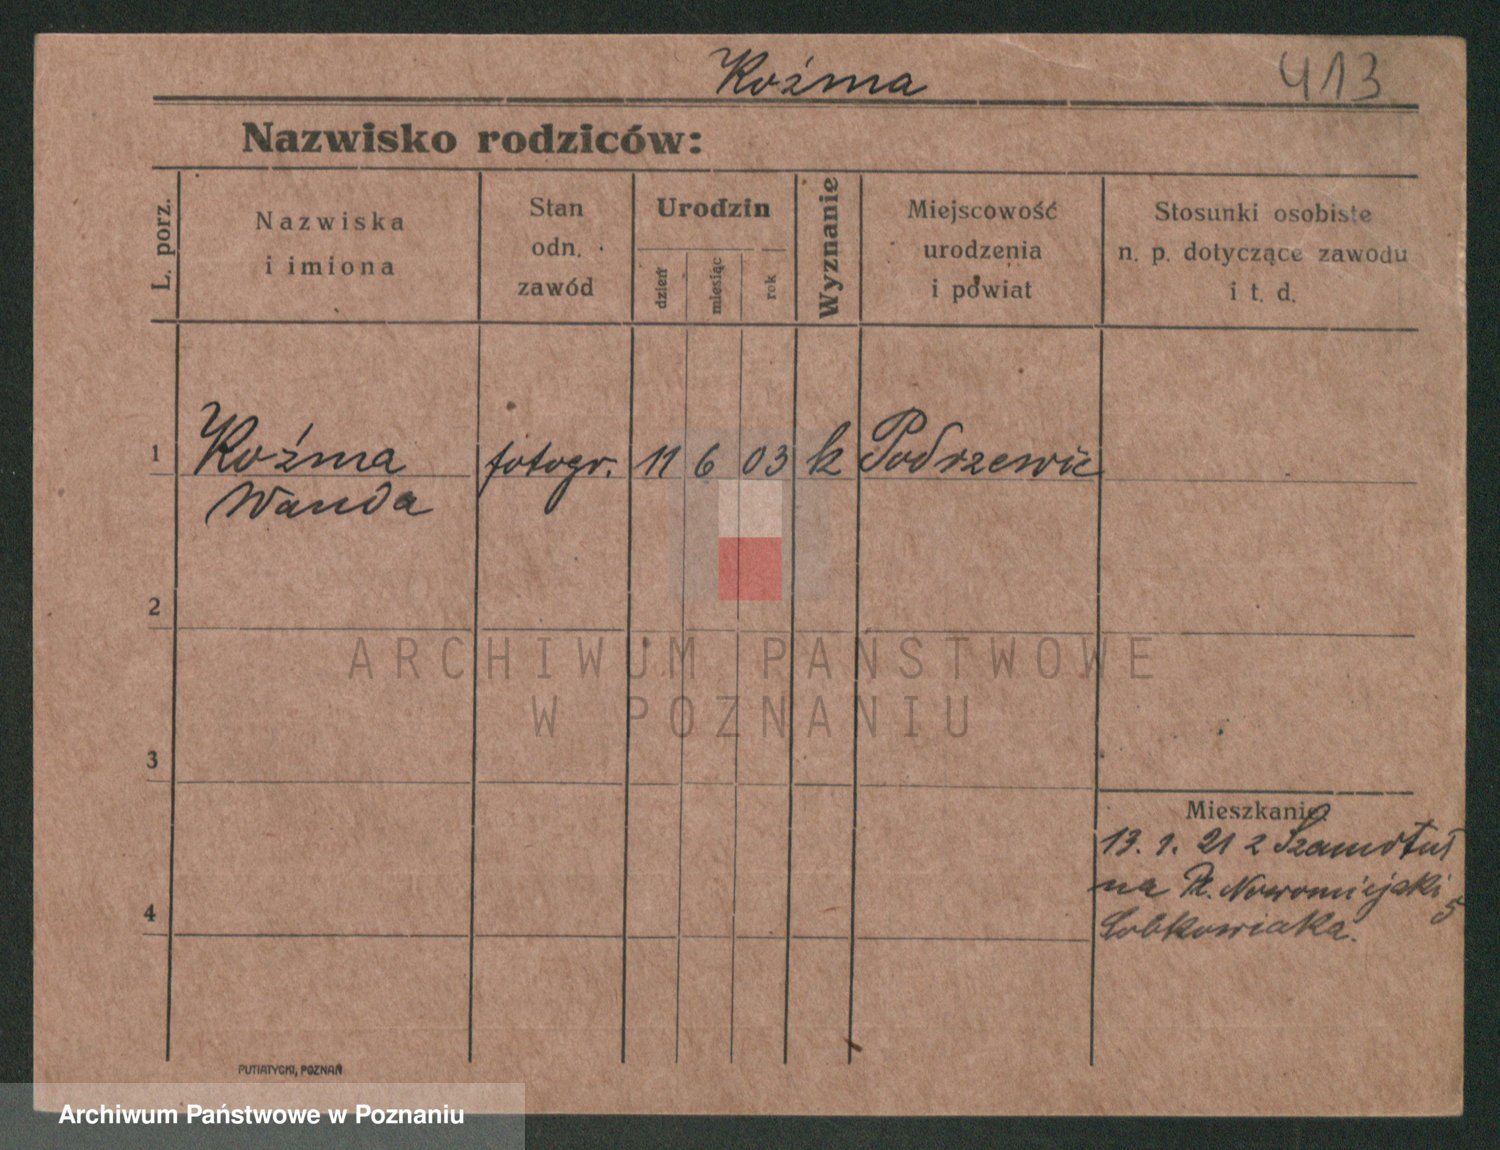 Koźma
413
Nazwisko rodziców:
L. porz.
Nazwiska
i imiona
Stan
odn.
zawód
Urodzin
dzień
miesiąc
rok
Wyznanie
Miejscowość
urodzenia
i powiat
Stosunki osobiste
n. p. dotyczące zawodu
i t. d.
1 Koźma fotogr. 11 6 03 k Podrzewie
Wanda
2
3
Mieszkanie
13. 1. 21 z Szamotuł
na Pl. Nowomiejski 5
Lobkowiaka.
4
PUTIATYCKI, POZNAŃ
ARCHIWUM PAŃSTWOWE
W POZNANIU
Archiwum Państwowe w Poznaniu